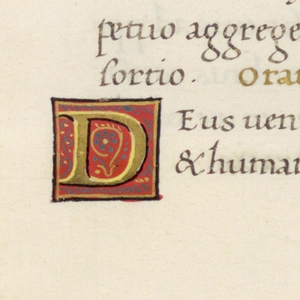 petuo aggrege
sortio. Orat
Deus ven
& human